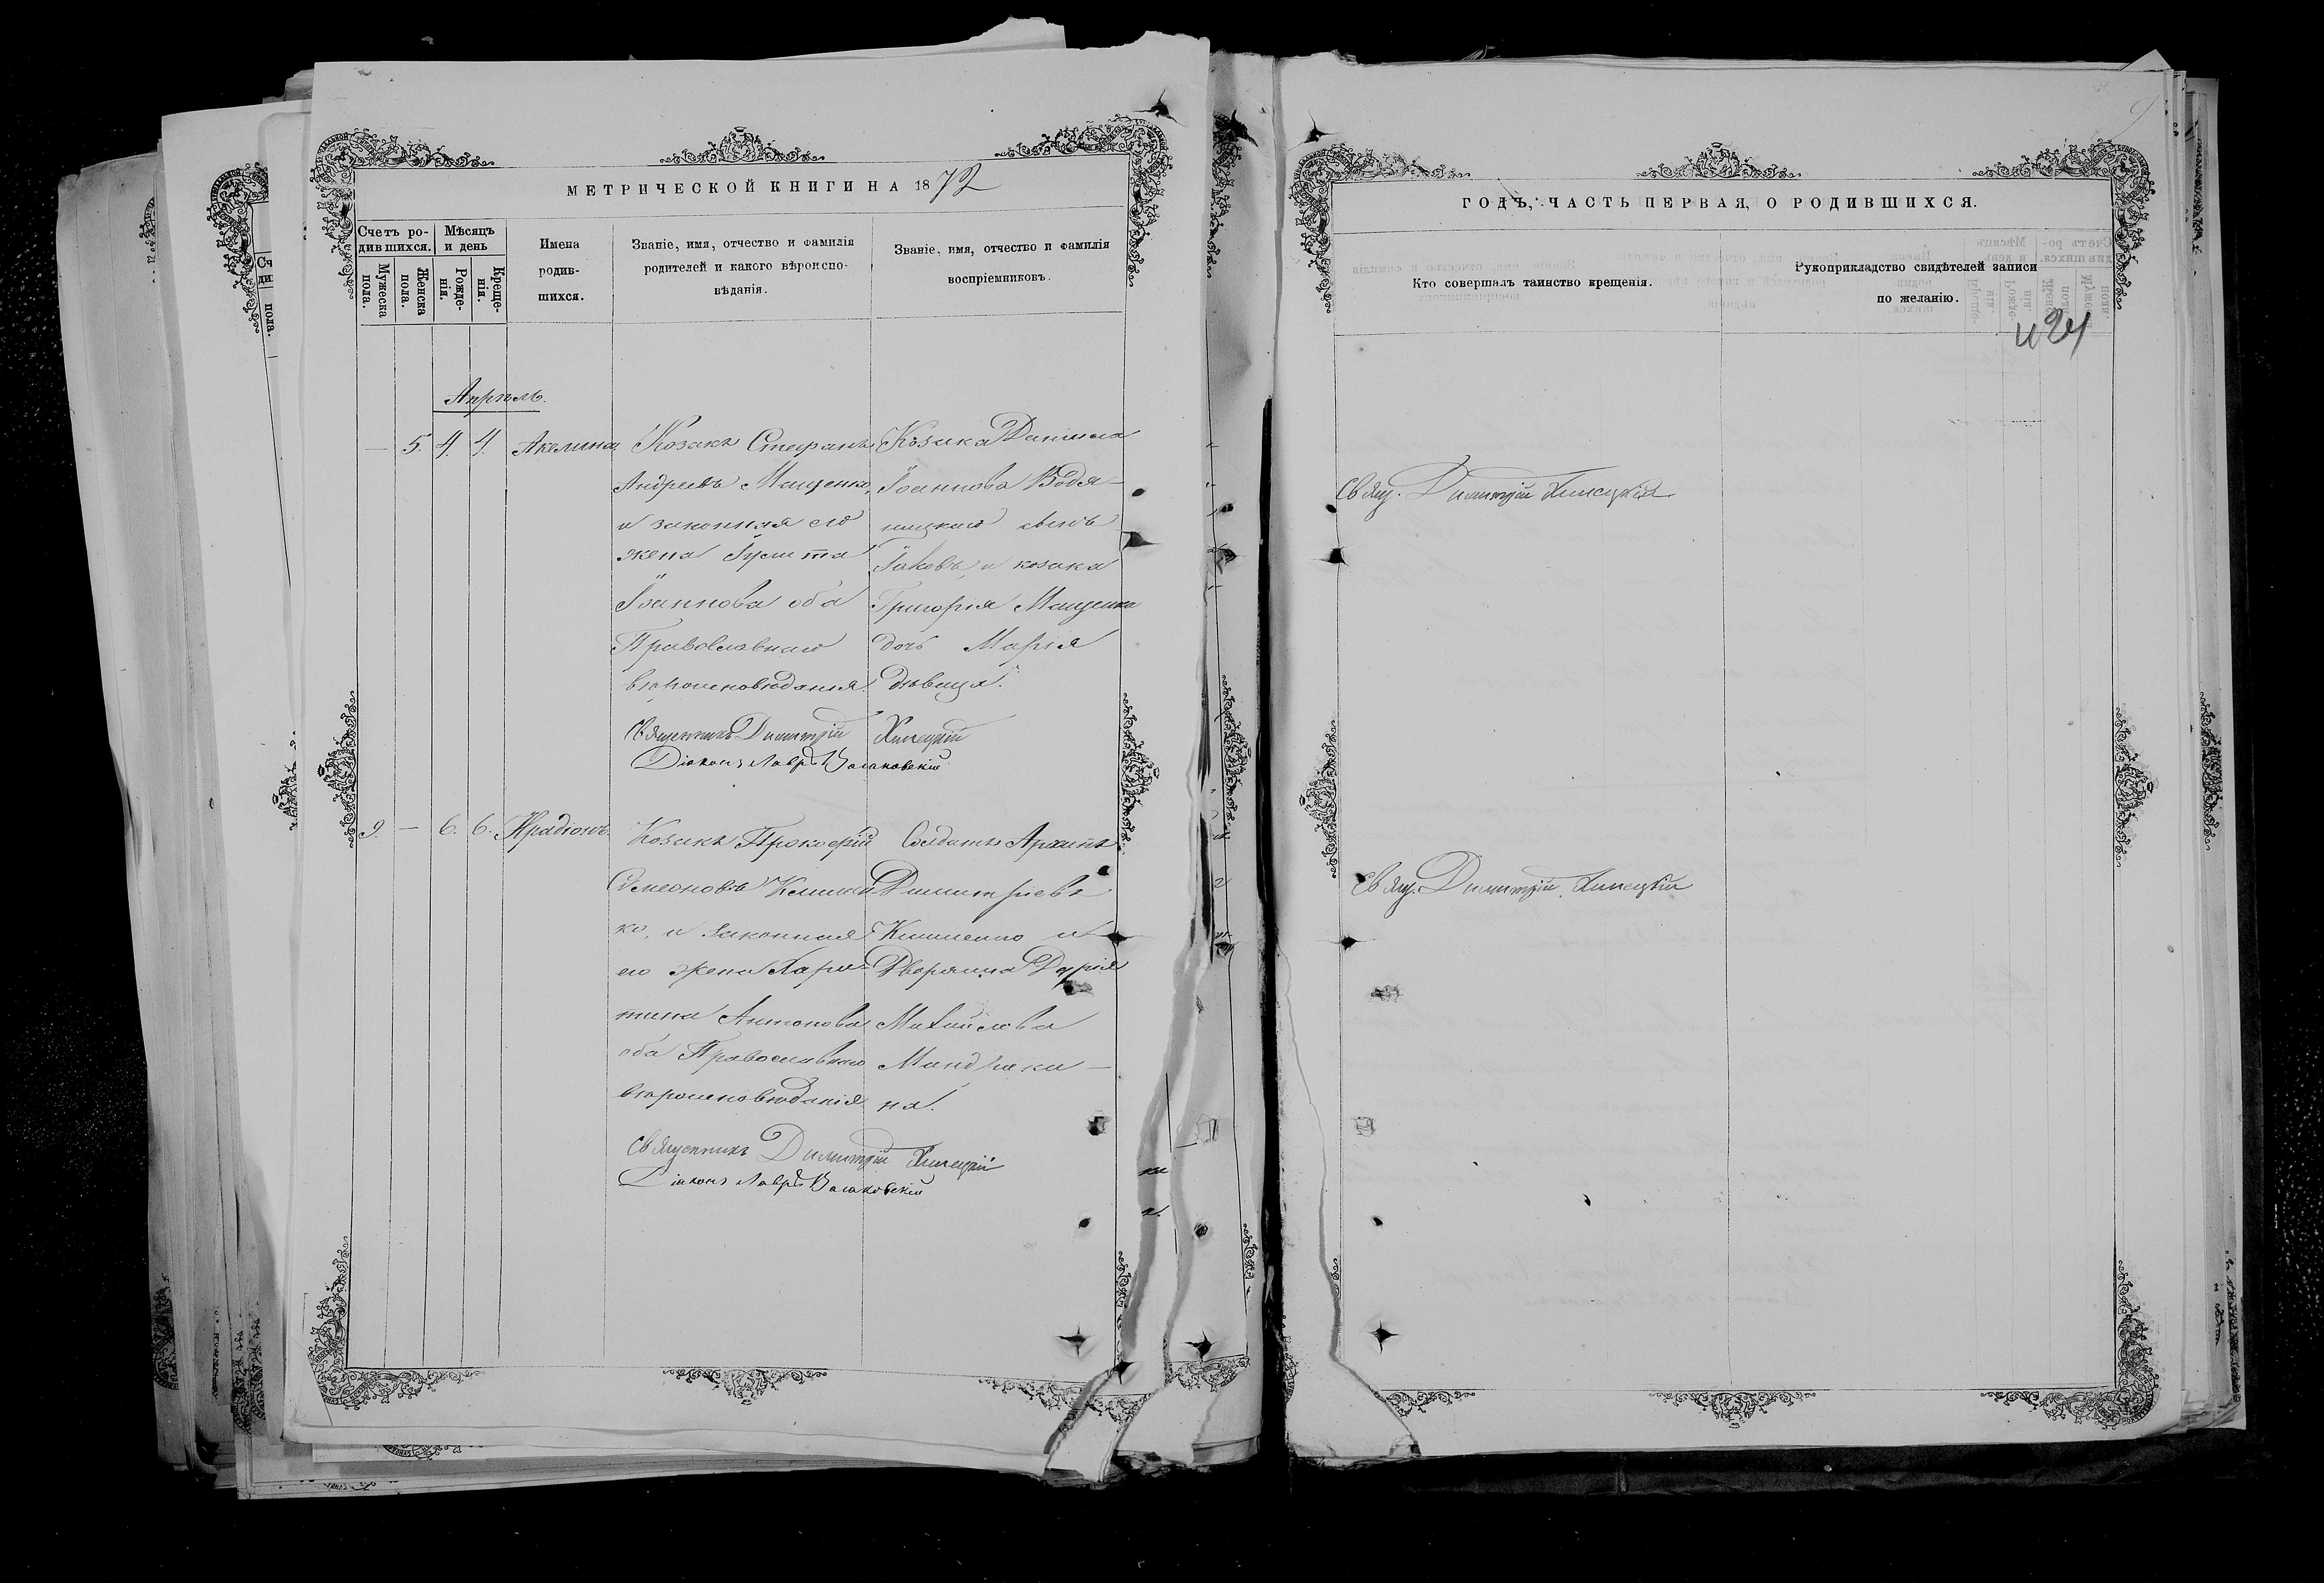 МЕТРИЧЕСКОЙ КНИГИ НА 1872
Счетъ ро-
дившихся.
Мѣсяцъ
и день
Мужеска
пола.
Женска
пола.
Рожде-
нія.
Креще-
нія.
Имена
родив-
шихся.
Званіе, имя, отчество и фамилія
родителей и какого вѣроиспо-
вѣданія.
Званіе, имя, отчество и фамилія
воспріемниковъ.
Апрѣль.
— 5. 4. 4. Акелина.
Козакъ Стефанъ
Андреевъ Мащенко,
и законная его
жена
Іоаннова оба
Православнаго
вѣроисповѣданія.
Козака Данила
Іоаннова Водя-
ницкаго сынъ
Іаковъ, и козака
Григорія Мащенка
дочь Марія
дѣвица.
Священникъ Димитрій
Діаконъ Лавръ
9. — 6. 6. Иродіонъ.
Козакъ Прокофій
Симеоновъ Климен
ко, и законная
его жена Хари-
тина Антонова
оба Православнаго
вѣроисповѣданія
Солдатъ Архипъ
Димитріевъ
Клименко и
Дворянка Дарія
Михайлова
на.
Священникъ Димитрій
Діаконъ Лавръ
ГОДЪ, ЧАСТЬ ПЕРВАЯ, О РОДИВШИХСЯ.
Кто совершалъ таинство крещенія.
Рукоприкладство свидѣтелей записи
по желанію.
Свящ. Димитрій
Свящ. Димитрій